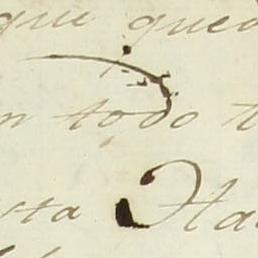 que qued
n todo t
sta Ha